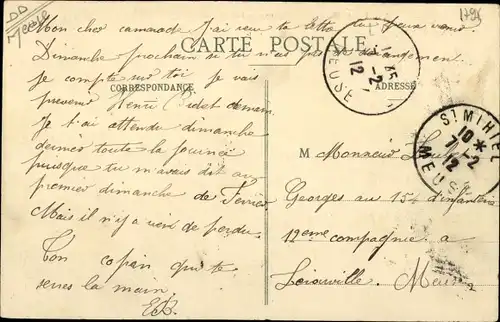 DD
Meuse
1795
Mon cher camarade j'ai reçu ta lettre tu peux venir
Dimanche prochain si tu n'as pas de dérangement.
CARTE POSTALE
je compte sur toi je vais
CORRESPONDANCE
ADRESSE
prévenir Henri demain
Je t'ai attendu dimanche
dernier toute la journée
puisque tu m'avais dit au
premier dimanche de Février
Mais il n'y a rien de perdu.
Ton copain qui te
serre la main.
EB.
MEUSE
7-2
12
ST MIHIEL
10 *
7-2
12
MEUSE
M Monsieur
Georges au 154 d'infanterie
12eme compagnie a
Lérouville. Meuse